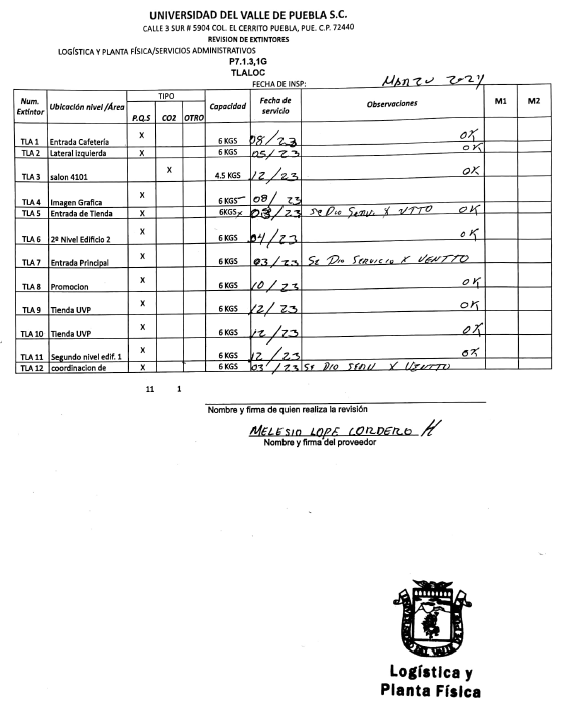 UNIVERSIDAD DEL VALLE DE PUEBLA S.C.
CALLE 3 SUR # 5904 COL. EL CERRITO PUEBLA, PUE. C.P. 72440
REVISION DE EXTINTORES
LOGÍSTICA Y PLANTA FÍSICA/SERVICIOS ADMINISTRATIVOS
P7.1.3,1G
TLALOC
FECHA DE INSP: Marzo 2024
Num. Extintor Ubicación nivel /Área TIPO P.Q.S CO2 OTRO Capacidad Fecha de servicio Observaciones M1 M2
TLA 1 Entrada Cafetería X 6 KGS 08/23 OK
TLA 2 Lateral Izquierda X 6 KGS 05/23 OK
TLA 3 salon 4101 X 4.5 KGS 12/23 OK
TLA 4 Imagen Grafica X 6 KGS 08/23
TLA 5 Entrada de Tienda X 6KGS 03/23 Se Dio Serv. X VTTO OK
TLA 6 2º Nivel Edificio 2 X 6 KGS 04/23 OK
TLA 7 Entrada Principal X 6 KGS 03/23 Se Dio Servicio X VENTTO
TLA 8 Promocion X 6 KGS 10/23 OK
TLA 9 Tienda UVP X 6 KGS 12/23 OK
TLA 10 Tienda UVP X 6 KGS 12/23 OK
TLA 11 Segundo nivel edif. 1 X 6 KGS 12/23 OK
TLA 12 coordinacion de X 6 KGS 03/23 Se DIO SERV X VENTTO
11 1
Nombre y firma de quien realiza la revisión
MELESIO LOPE CORDERO H
Nombre y firma del proveedor
Logística y
Planta Física